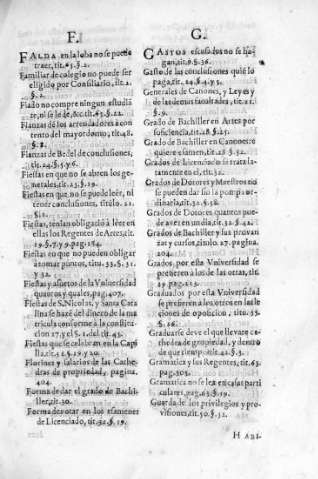 F.
FALDA en la loba no se puede
traer, tit. 65. §. 2.
Familiar de colegio no puede ser
eligido por Consiliario, tit. 2.
§. 2.
Fiado no compre ningun estudiã
te, ni se le dè, &c. tit. 63. §. 22.
Fianzas de los arrendadores á con
tento del mayordomo, tit. 48.
§. 8.
Fianzas de Bedel de conclusiones,
tit. 24. §. 5. y 6.
Fiestas en que no se abren los ge-
nerales, tit. 23. §. 19.
Fiestas en que no se puede leer, ni
tener conclusiones, titulo. 22.
Fiestas, tenian obligaciõ à leer en
ellas los Regentes de Artes, tit.
19. §. 7. y 9. pag. 184.
Fiestas en que no pueden obligar
à tomar puntos, titu. 33. §. 31.
y 32.
Fiestas y assuetos de la Vniversidad
quantos y quales, pag. 407.
Fiestas de S. Nicolas, y Santa Cata
lina se hazê del dinero de la ma
tricula conforme à la constitu
cion 27. y el §. 1. del tit. 45.
Fiestas que se celebran en la Capi
lla, tit. 52. §. 19. y 20.
Florines y salarios de las Cathe-
dras de propiedad, pagina.
404.
Forma de dar el grado de Bachi-
ller, tit. 30.
Forma de votar en los examenes
de Licenciado, tit. 32. §. 19.
G.
GASTOS escusados no se ha-
gan, tit. 9. §. 36.
Gasto de las conclusiones quiê lo
paga, tit. 24. §. 4. y 5.
Generales de Canones, y Leyes y
de las demas facultades, tit. 21.
§. 9.
Grado de Bachiller en Artes por
suficiencia, tit. 28. §. 25.
Grado de Bachiller en Canones:
quiere examen, tit. 28. §. 32.
Grados de licenciado se trata la-
tamente en el tit. 32.
Grados de Dotores y Maestros no
se pueden dar sin la pompa or-
dinaria, tit. 32. §. 58.
Grados de Dotores quantos pue-
de aver en un dia, tit. 32. §. 42.
Grados de Bachiller y su provan
za y cursos, titulo 27. pagina.
204.
Grados por esta Vniversidad se
prefieren à los de las otras, tit.
29. pag. 215.
Graduados por esta Vniversidad
se prefieren à los otros en las le
ciones de oposicion, titu. 33.
§. 26.
Graduarse deve el que llevare ca-
thedra de propiedad, y dentro
de que tiempo: tit. 42. §. 3.
Gramatica y los Regentes, tit. 63.
pag. 305.
Gramatica no se lea en casas parti
culares, pag. 63. §. 19.
Guarda de los privilegios y pro-
visiones, tit. 50. §. 32.
H ABI-